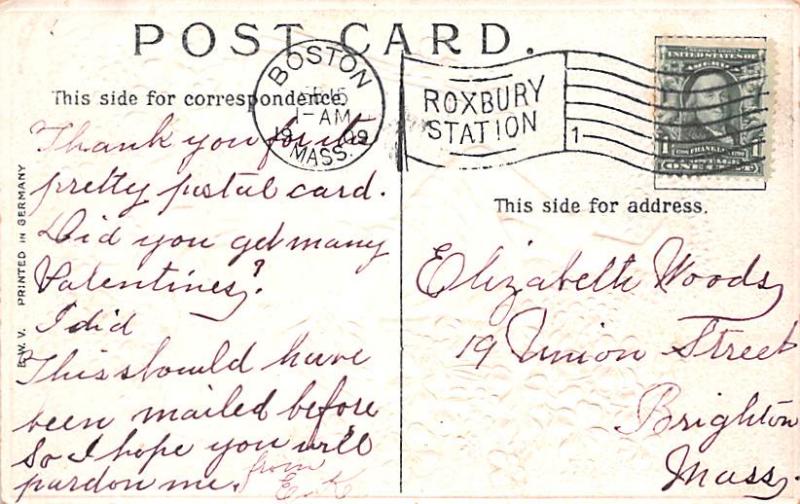 POST CARD.
This side for correspondence.
BOSTON
15
1-AM
1909
MASS.
ROXBURY
STATION
1
UNITED STATES OF
AMERICA
FRANKLIN
ONE CENT
This side for address.
Thank you for the
pretty postal card.
Did you get many
Valentines?
I did
This should have
been mailed before
So I hope you will
pardon me.
from
Elizabeth Woods,
19 Union Street
Brighton
Mass.
B.W.V. PRINTED IN GERMANY